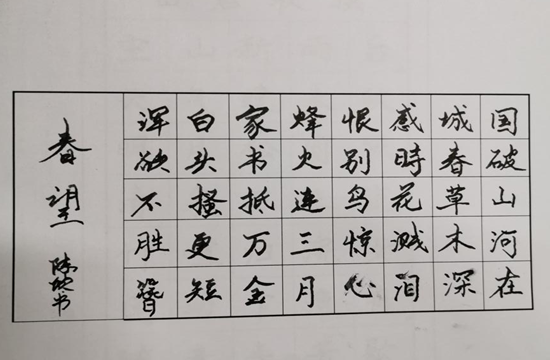 国破山河在
城春草木深
感時花溅泪
恨别鸟惊心
蜂火連三月
家书抵万金
白头搔更短
浑欲不胜簪
春望
书